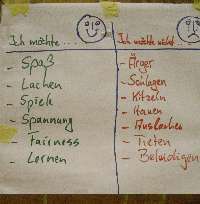 Ich möchte...
- Spaß
- Lachen
- Spiele
- Spannung
- Fairness
- Lernen
Ich möchte nicht...
- Ärger
- Schlagen
- Kitzeln
- Hauen
- Auslachen
- Treten
- Beleidigen